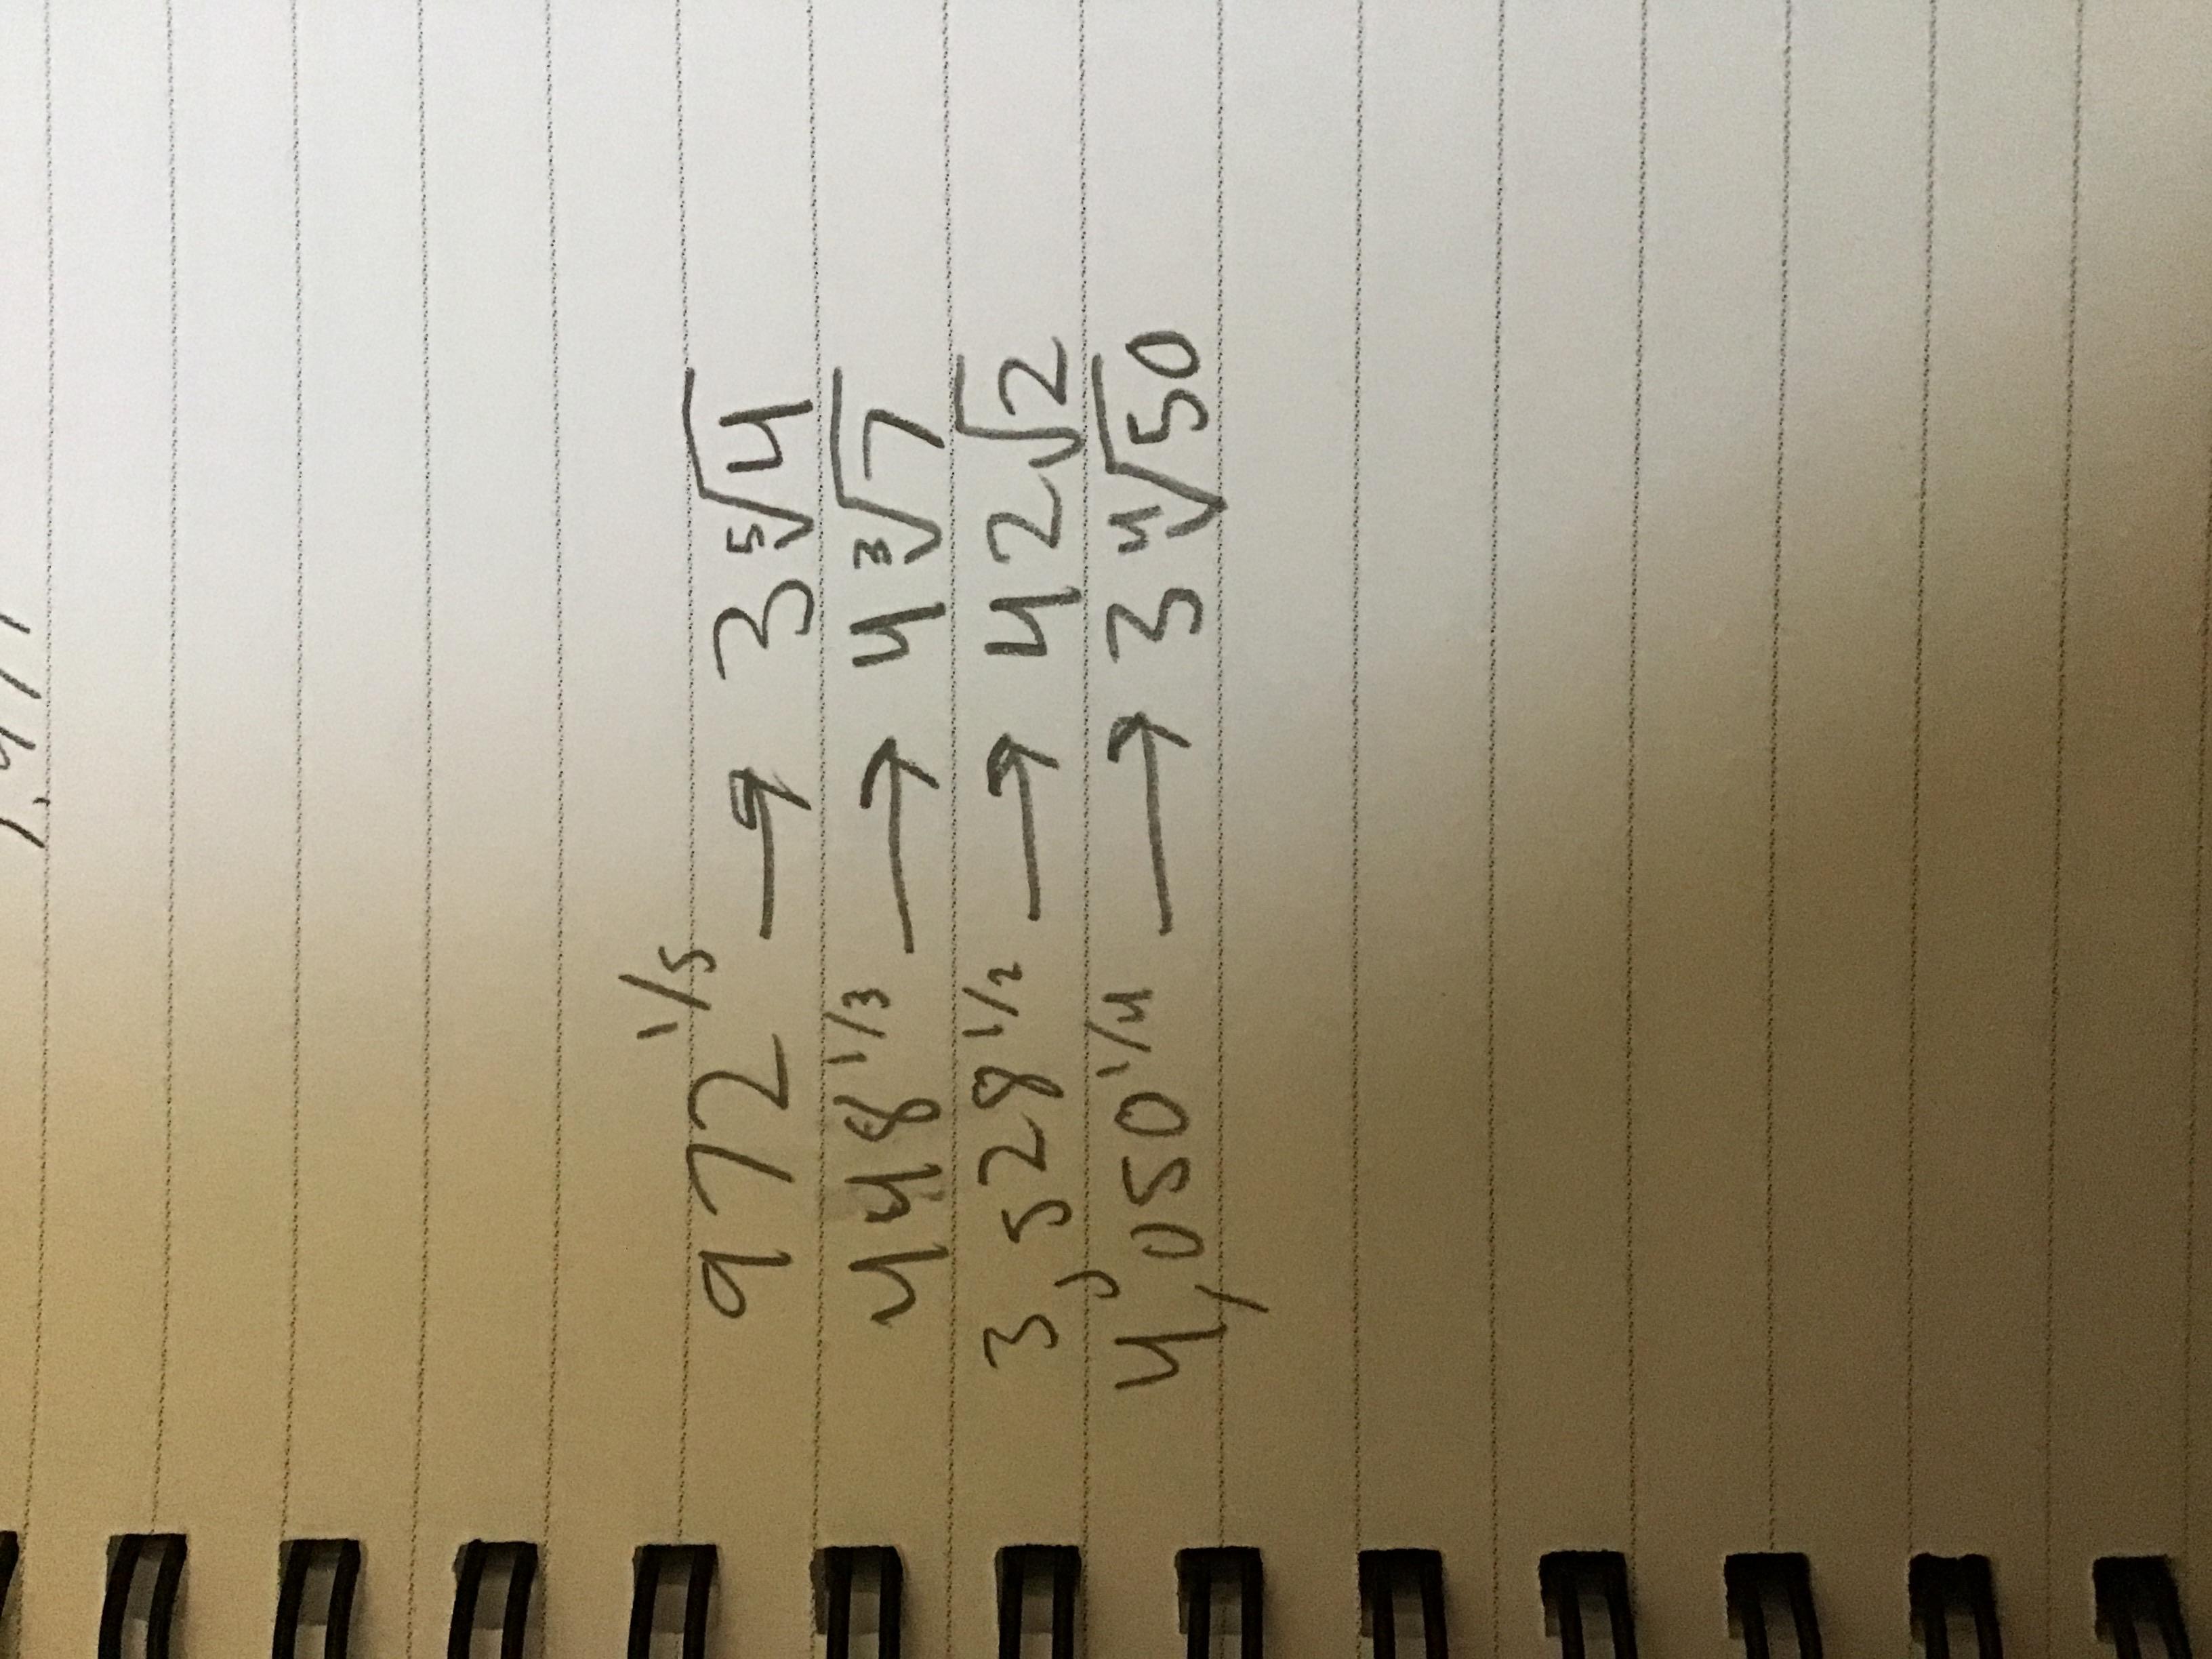 972^1/5 → 3 ⁵√4
448^1/3 → 4 ³√7
3,528^1/2 → 42√2
4,050^1/4 → 3 ⁴√50